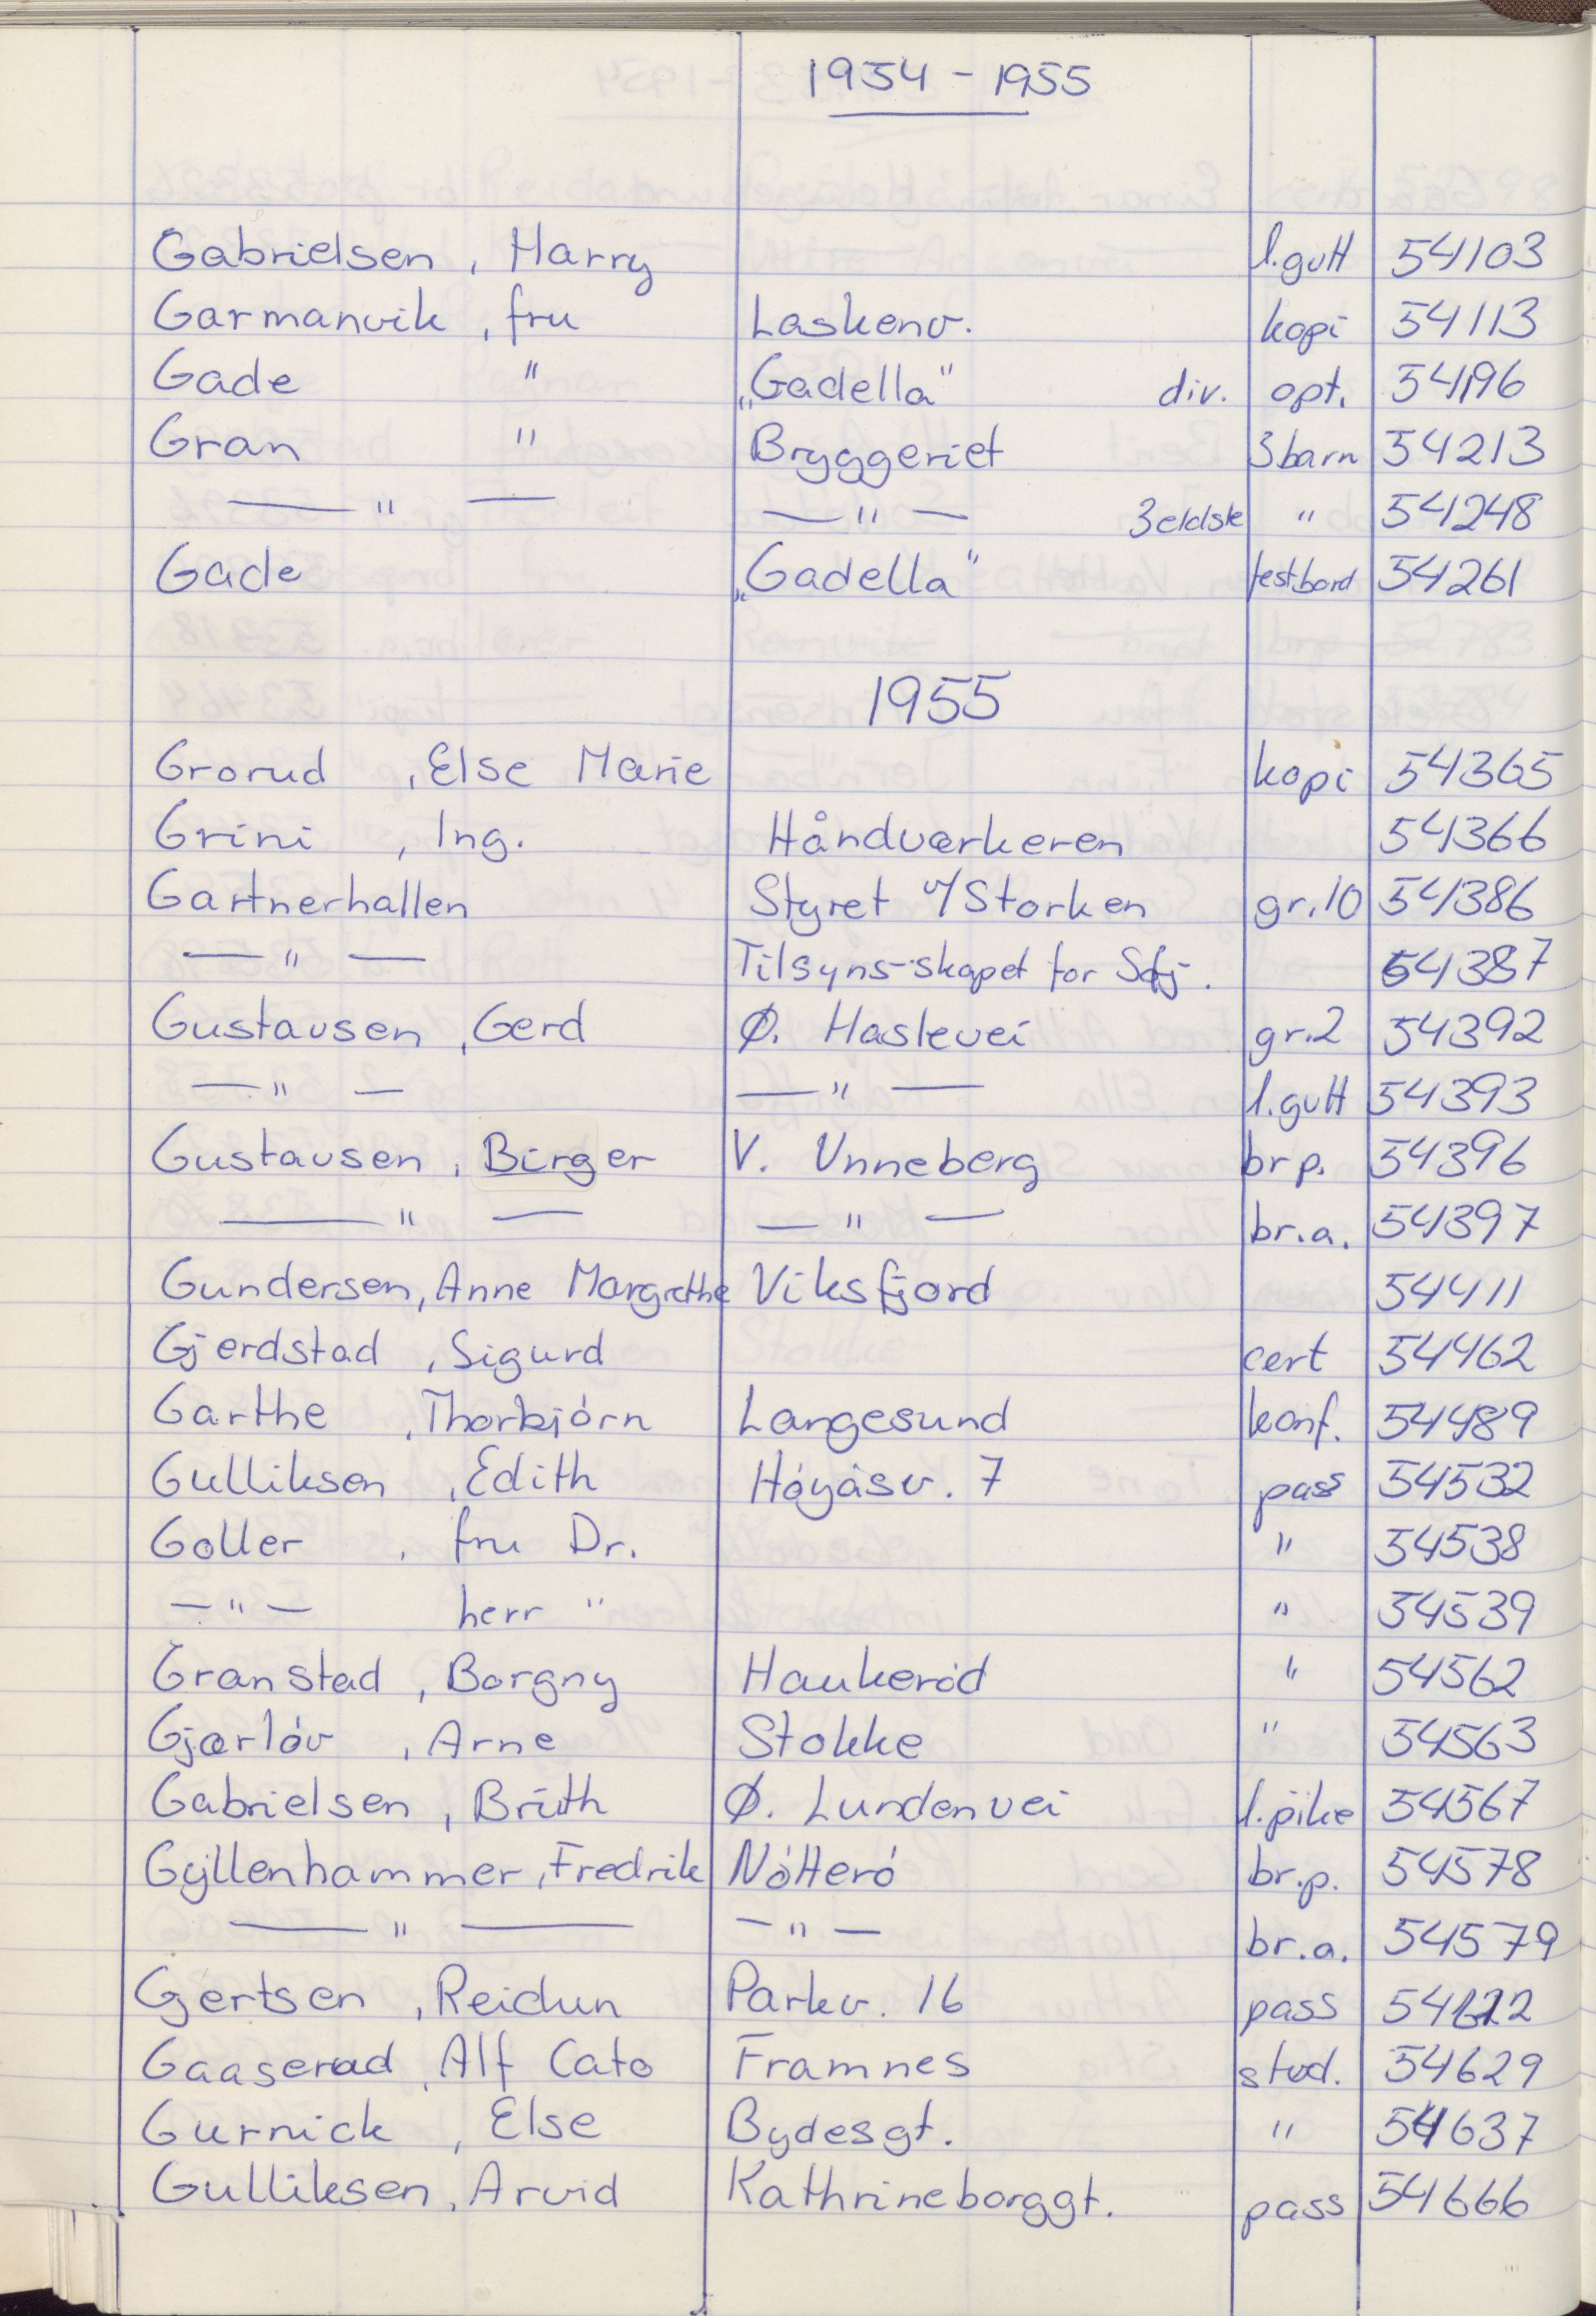 1954 - 1955
Gabrielsen, Harry l.gutt 54103
Garmanvik, fru Laskenv. kopi 54113
Gade " „Gadella" div. opt. 54196
Gran " Bryggeriet 3 barn 54213
— " — — " — 3 eldste " 54248
Gade „Gadella" festbord 54261
1955
Grorud, Else Marie kopi 54365
Grini, Ing. Håndværkeren 54366
Gartnerhallen Styret v/Storken gr. 10 54386
— " — Tilsyns-skapet for Sfj. 54387
Gustavsen, Gerd Ø. Haslevei gr. 2 54392
— " — — " — l.gutt 54393
Gustavsen, Birger V. Unneberg br p. 54396
— " — — " — br.a. 54397
Gundersen, Anne Margrethe Viksfjord 54411
Gjerdstad, Sigurd cert 54462
Garthe, Thorbjórn Langesund konf. 54489
Gulliksen, Edith Hóyåsv. 7 pass 54532
Goller, fru Dr. " 54538
— " — herr " " 54539
Granstad, Borgny Haukeród " 54562
Gjærlóv, Arne Stokke " 54563
Gabrielsen, Brith Ø. Lundenvei l.pike 54567
Gyllenhammer, Fredrik Nótteró br.p. 54578
— " — — " — br.a. 54579
Gjertsen, Reidun Parkv. 16 pass
Gaaserud, Alf Cato Framnes stud. 54629
Gurnick, Else Bydesgt. " 54637
Gulliksen, Arvid Kathrineborggt. pass 54666